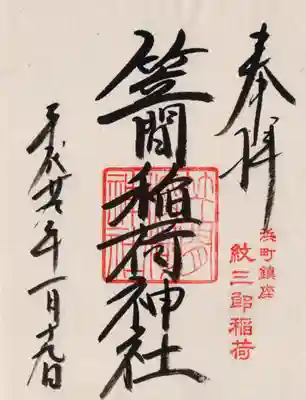 奉拝
浜町鎮座
紋三郎稲荷
笠間稲荷神社
平成廿八年一月十九日